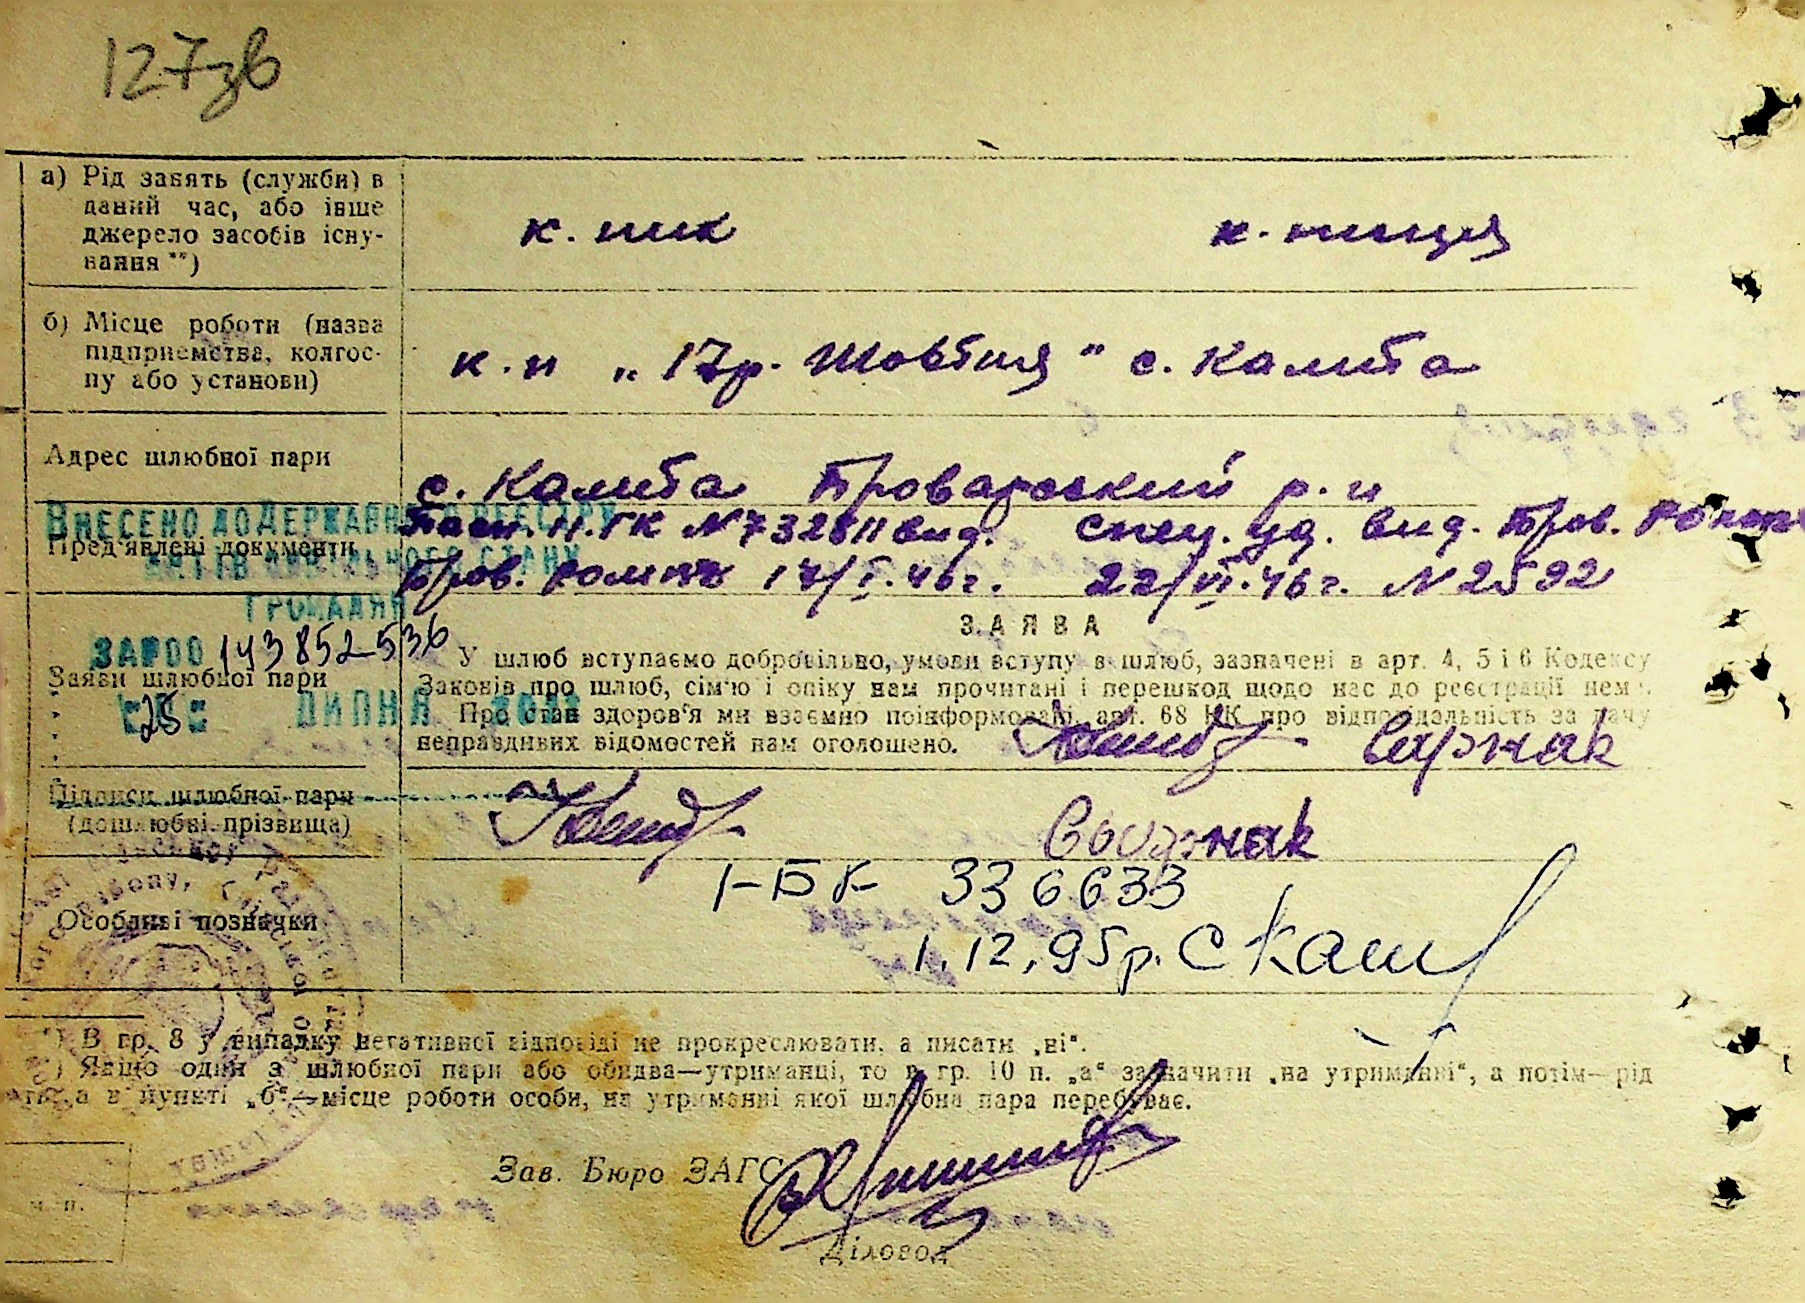 127зв
а) Рід занять (служби) в
даний час, або інше
джерело засобів існу-
вання **)
к. ник к. ниця
б) Місце роботи (назва
підприємства, колгос-
пу або установи)
к. п „17 р. Жовтня" с. Калита
Адрес шлюбної пари
с. Калита Броварський р. н
ВНЕСЕНО ДО ДЕРЖАВНОГО РЕЄСТРУ
АКТІВ ЦИВІЛЬНОГО СТАНУ
ГРОМАДЯН
Пред'явлені документи
Пасп. II. ГК N 732811 вид. спец. уд. вид. Бров.
Бров. 17/I. 46 г. 22/VI. 46 г. N 2592
ЗА №00 143852536
25 ЛИПНЯ
Заяви шлюбної пари
ЗАЯВА
У шлюб вступаємо добровільно, умови вступу в шлюб, зазначені в арт. 4, 5 і 6 Кодексу
Законів про шлюб, сім'ю і опіку нам прочитані і перешкод щодо нас до реєстрації нема.
Про стан здоров'я ми взаємно поінформовані, арт. 68 КК про відповідальність за дачу
неправдивих відомостей нам оголошено.
Підписи шлюбної пари
(дошлюбні прізвища)
Особливі позначки
І-БК 336633
1.12.95р.
*) В гр. 8 у випадку негативної відповіді не прокреслювати, а писати „ні".
**) Якщо один з шлюбної пари або обидва—утриманці, то в гр. 10 п. „а" зазначити „на утриманні", а потім—рід
в пункті „б"—місце роботи особи, на утриманні якої шлюбна пара перебуває.
Зав. Бюро ЗАГС
м. п.
Діловод